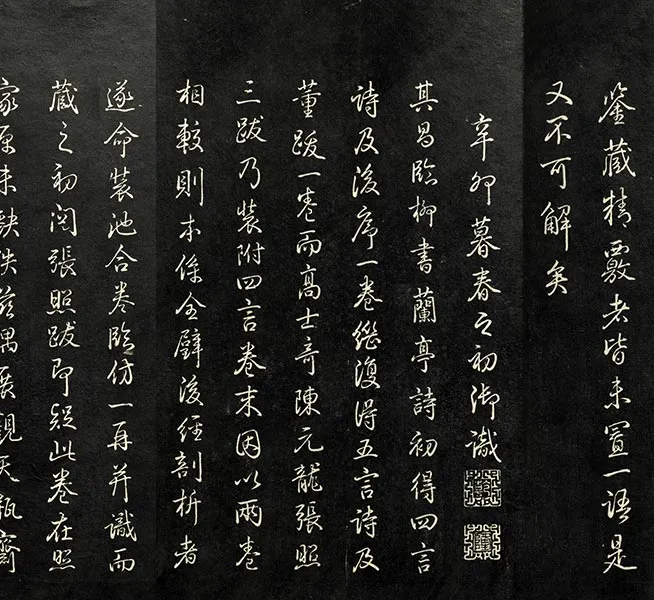 鉴藏精覈者皆未置一語是
又不可解矣
辛卯暮春之初御識
其昌臨柳書蘭亭詩初得四言
詩及後序一卷繼復得五言詩及
董跋一卷而高士奇陳元龍張照
三跋乃裝附四言卷末因以兩卷
相較則本係全璧後經剖析者
遂命裝池合卷臨仿一再并識而
藏之初閱張照跋即疑此卷在照
家原未缺佚茲偶展觀天瓶齋